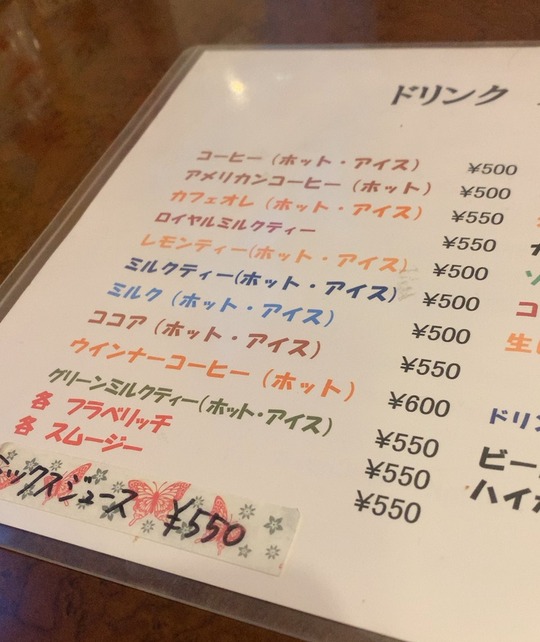 ドリンク
コーヒー（ホット・アイス） ¥500
アメリカンコーヒー（ホット） ¥500
カフェオレ（ホット・アイス） ¥550
ロイヤルミルクティー ¥550
レモンティー(ホット・アイス) ¥500
ミルクティー(ホット・アイス) ¥500
ミルク（ホット・アイス） ¥500
ココア（ホット・アイス） ¥550
ウインナーコーヒー（ホット） ¥600
グリーンミルクティー(ホット・アイス) ¥550
各 フラベリッチ ¥550
各 スムージー ¥550
ックスジュース ¥550
コ
生
ドリン
ビー
ハイ